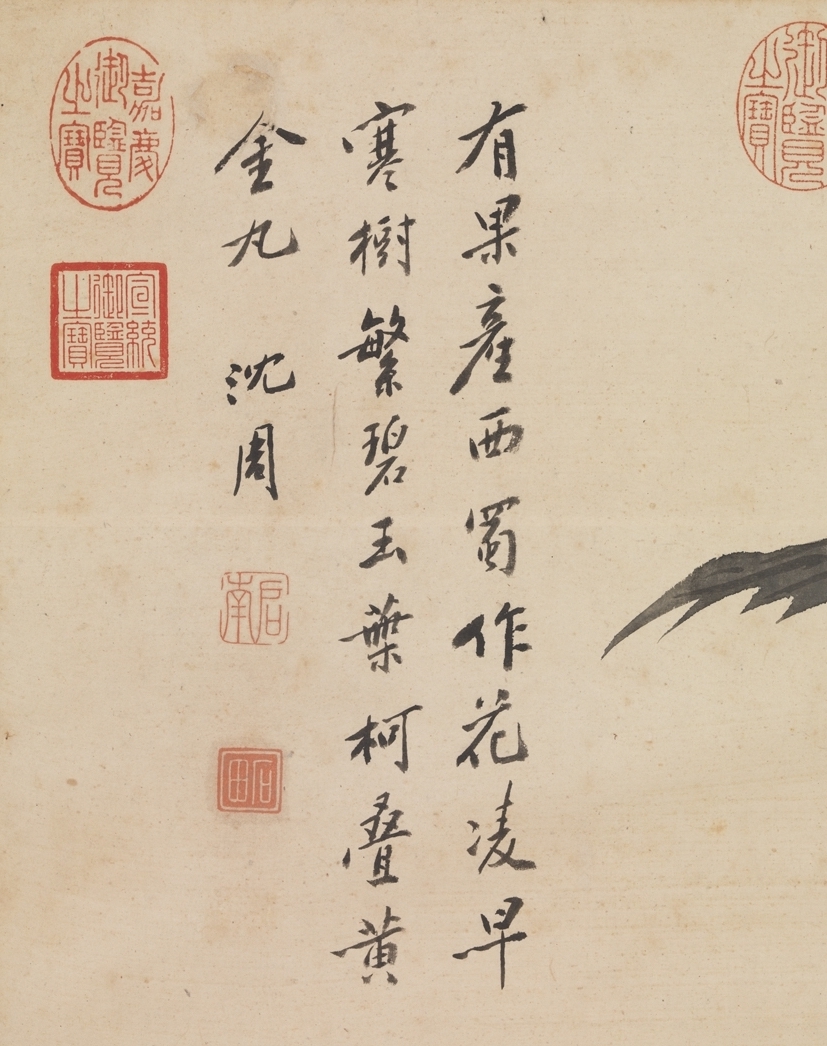 有果產西蜀作花凌早
寒樹繁碧玉葉柯疊黄
金丸 沈周
啟南
石田
嘉慶御覽之寶
宣統御覽之寶
御覽之寶